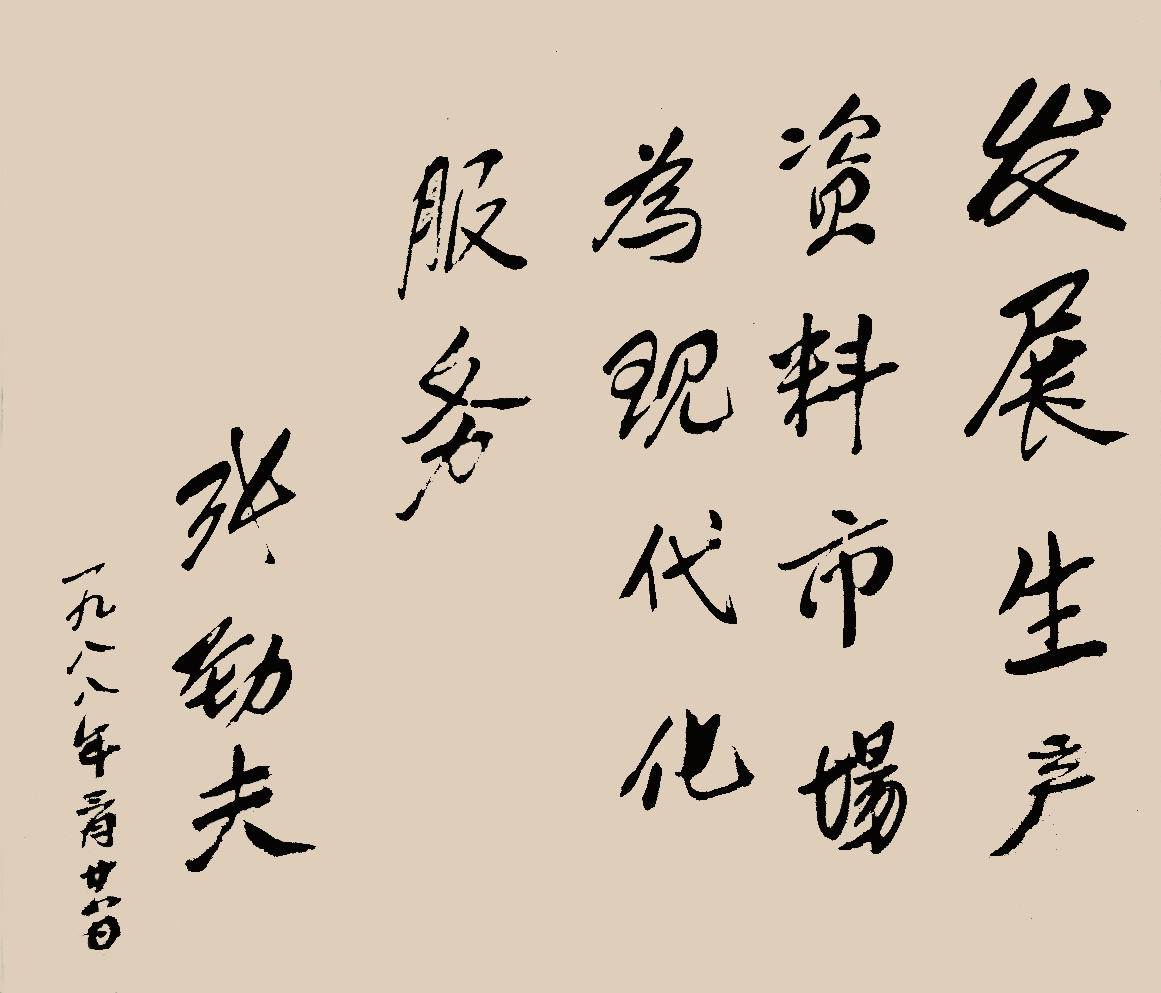 发展生产
资料市場
為现代化
服务
张劲夫
一九八八年三月廿八日